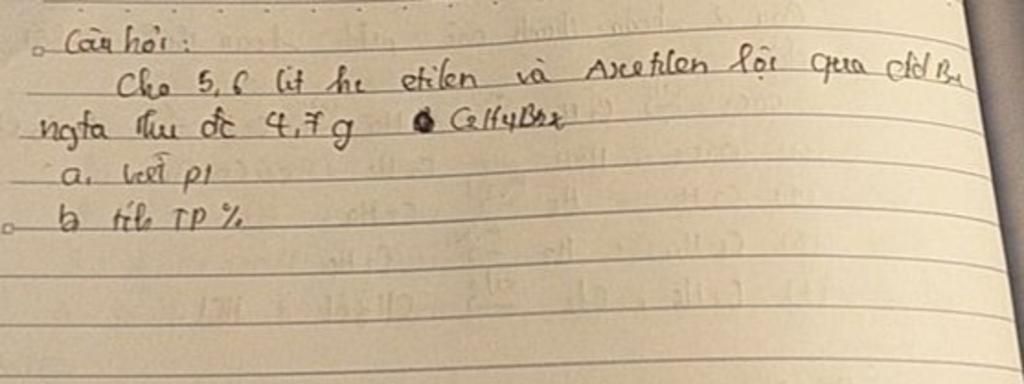 Câu hỏi:
Cho 5,6 lít hh etilen và Axetilen lội qua dd Br2
ngta thu đc 4,7g C2H4Br2
a. viết pt
b tính TP %